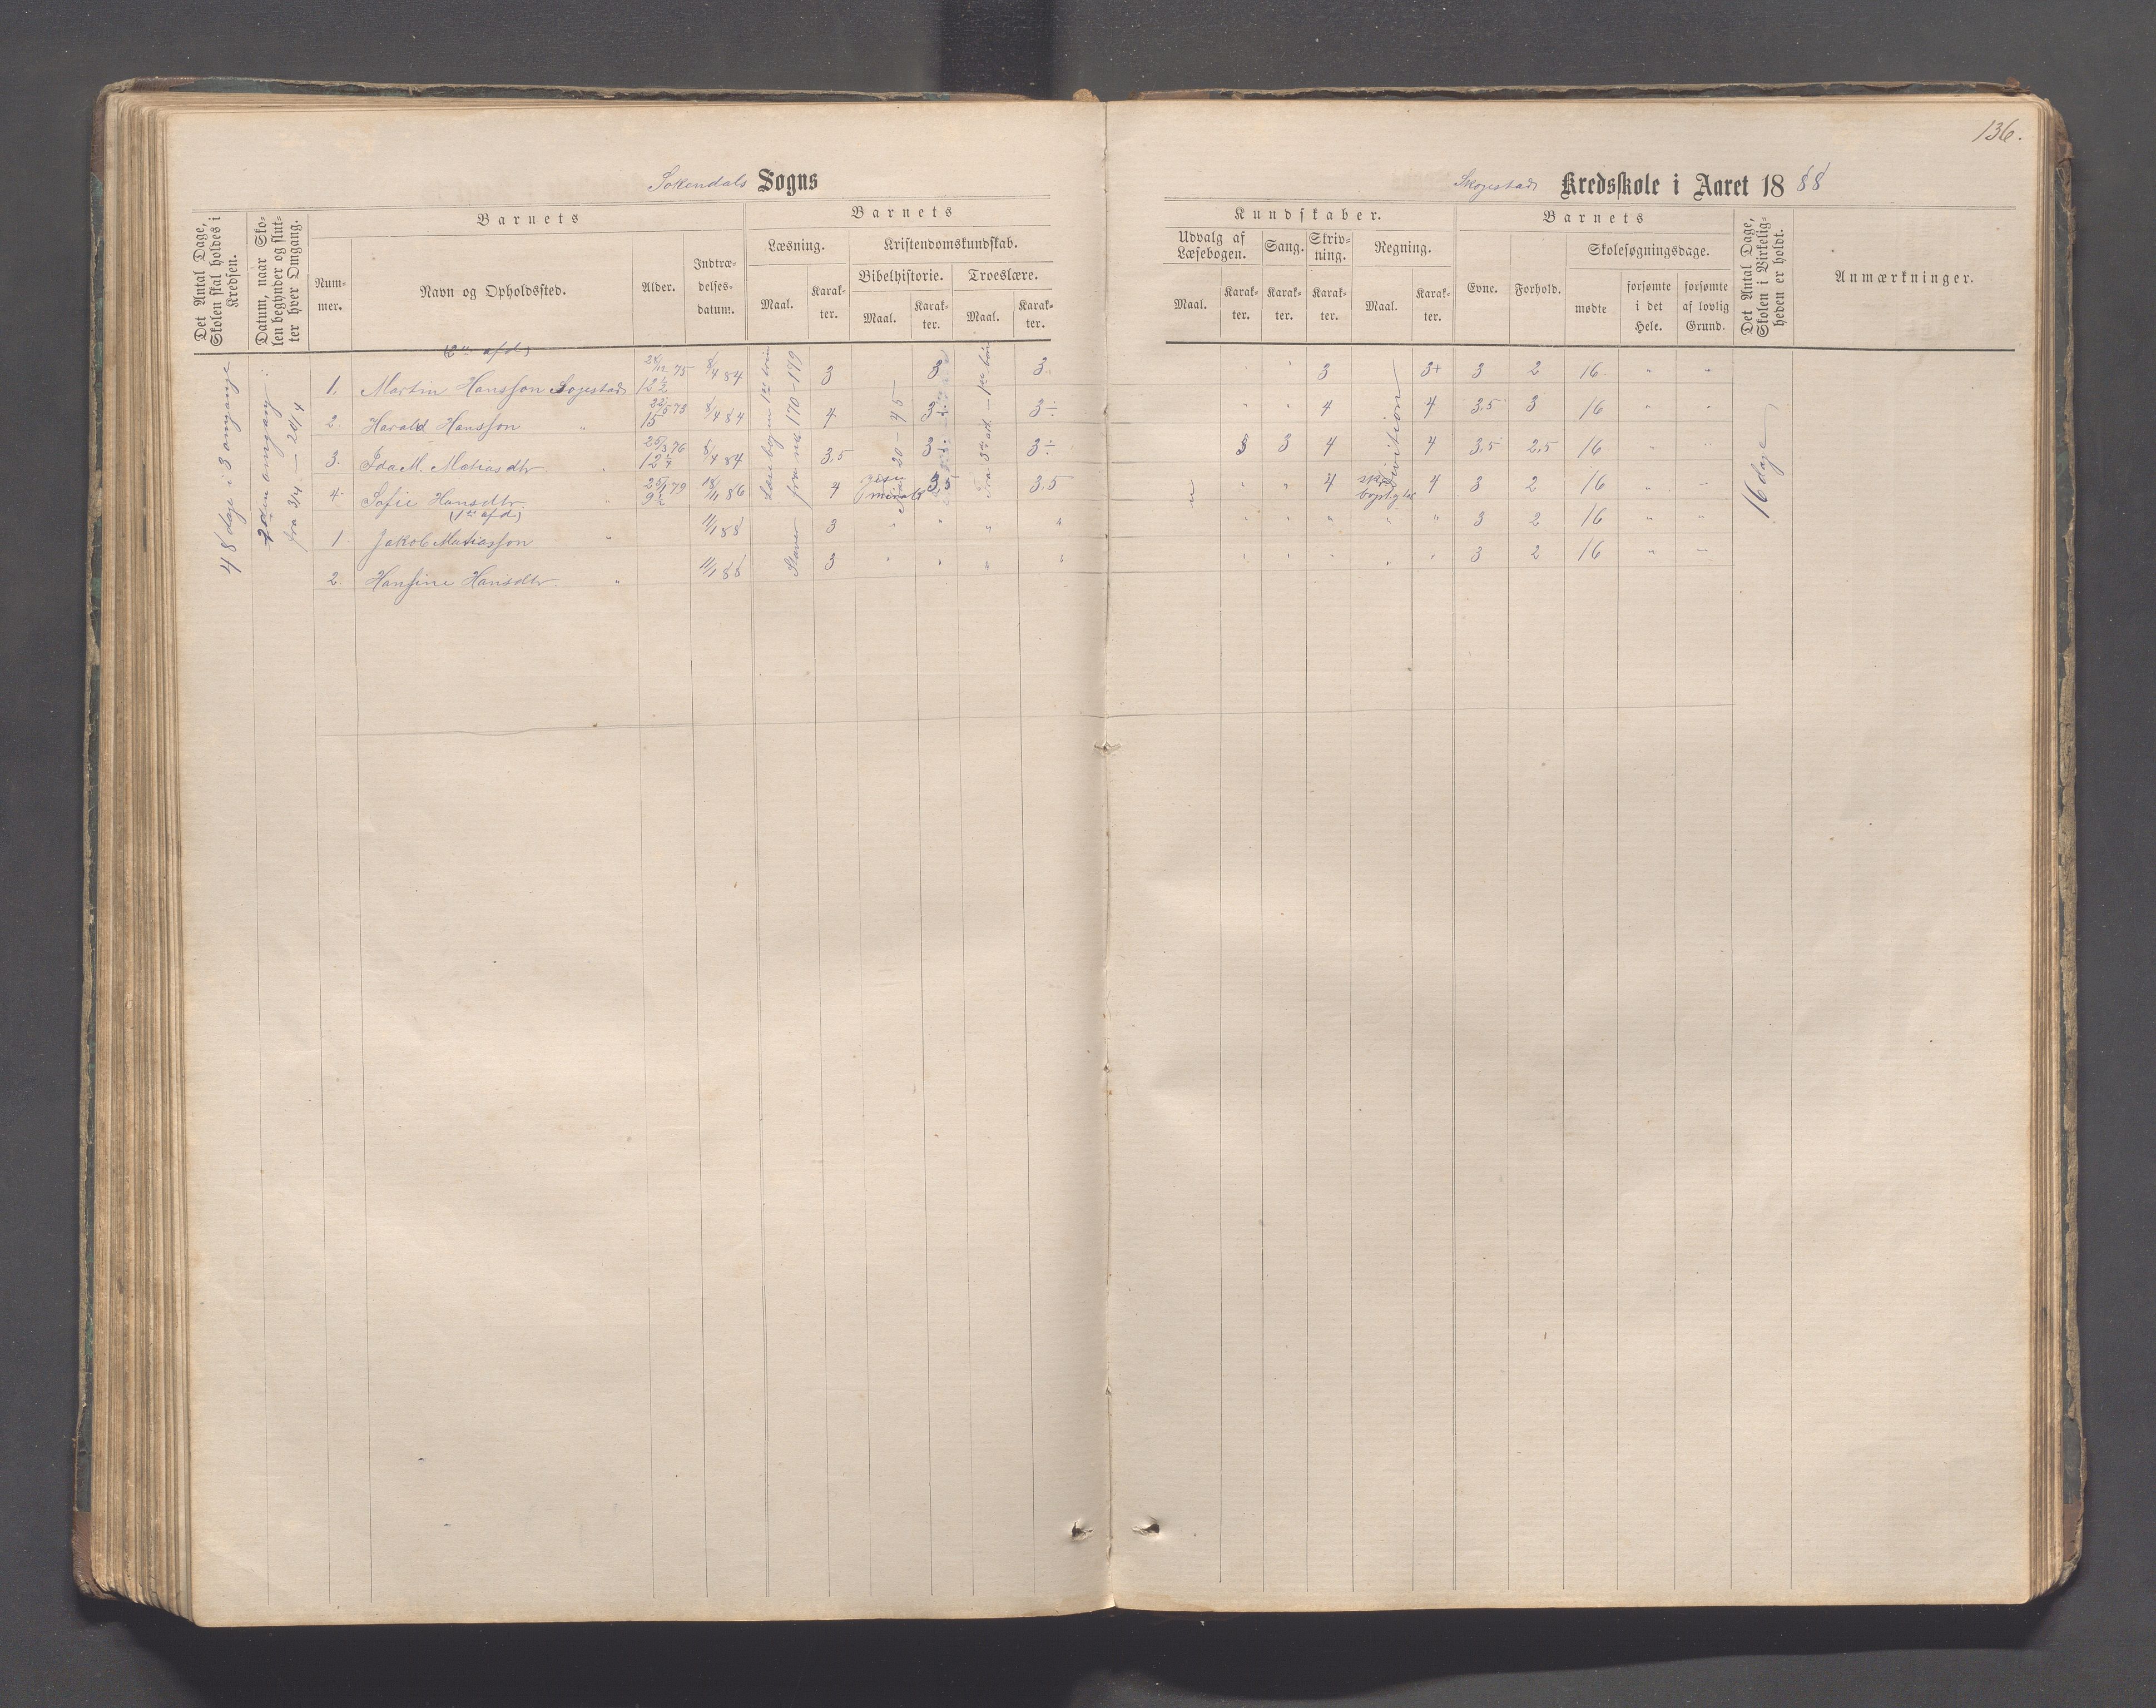 136.
Sokendals Sogns
Skogestad Kredsskole i Aaret 18 88
Det Antal Dage, Skolen skal holdes i Kredsen.
Datum, naar Skolen begynder og slutter hver Omgang.
Barnets
Nummer.
Navn og Opholdssted.
Alder.
Indtrædelsesdatum.
Barnets
Læsning.
Maal.
Karakter.
Kristendomskundskab.
Bibelhistorie.
Maal.
Karakter.
Troeslære.
Maal.
Karakter.
Kundskaber.
Udvalg af Læsebogen.
Maal.
Karakter.
Sang.
Karakter.
Skrivning.
Karakter.
Regning.
Maal.
Karakter.
Barnets
Evne.
Forhold.
Skolesøgningsdage.
mødte
forsømte i det Hele.
forsømte af lovlig Grund.
Det Antal Dage, Skolen i Virkeligheden er holdt.
Anmærkninger.
48 dage i 3 omgange
2den omgang:
fra 3/4 — 20/4
(2den afd)
1. Martin Hansson Sogestad 75 12½ 8/4 84 3 3 3 3 3+ 3 2 16 " "
2. Harald Hansson " 73 15 8/4 84 4 3÷ 3÷ " " 4 4 3,5 3 16 " "
3. Ida M. Matiasdtr. " 25/3 76 8/4 84 3,5 3÷ 3÷ 3 3 4 4 3,5 2,5 16 " "
4. Sofie Hansdtr. " 25/1 79 18/11 86 4 3,5 3.5 " " 4 4 3 2 16 " "
(1ste afd)
1 Jakob Matiasson " 11/1 88 3 " " " " " " " " " 3 2 16 " "
2. Hansine Hansdtr. " 11/1 88 3 " " " " " " " " " 3 2 16 " "
Læsebogen
fra no 170-179
Staver
20-45
Division
16 dage